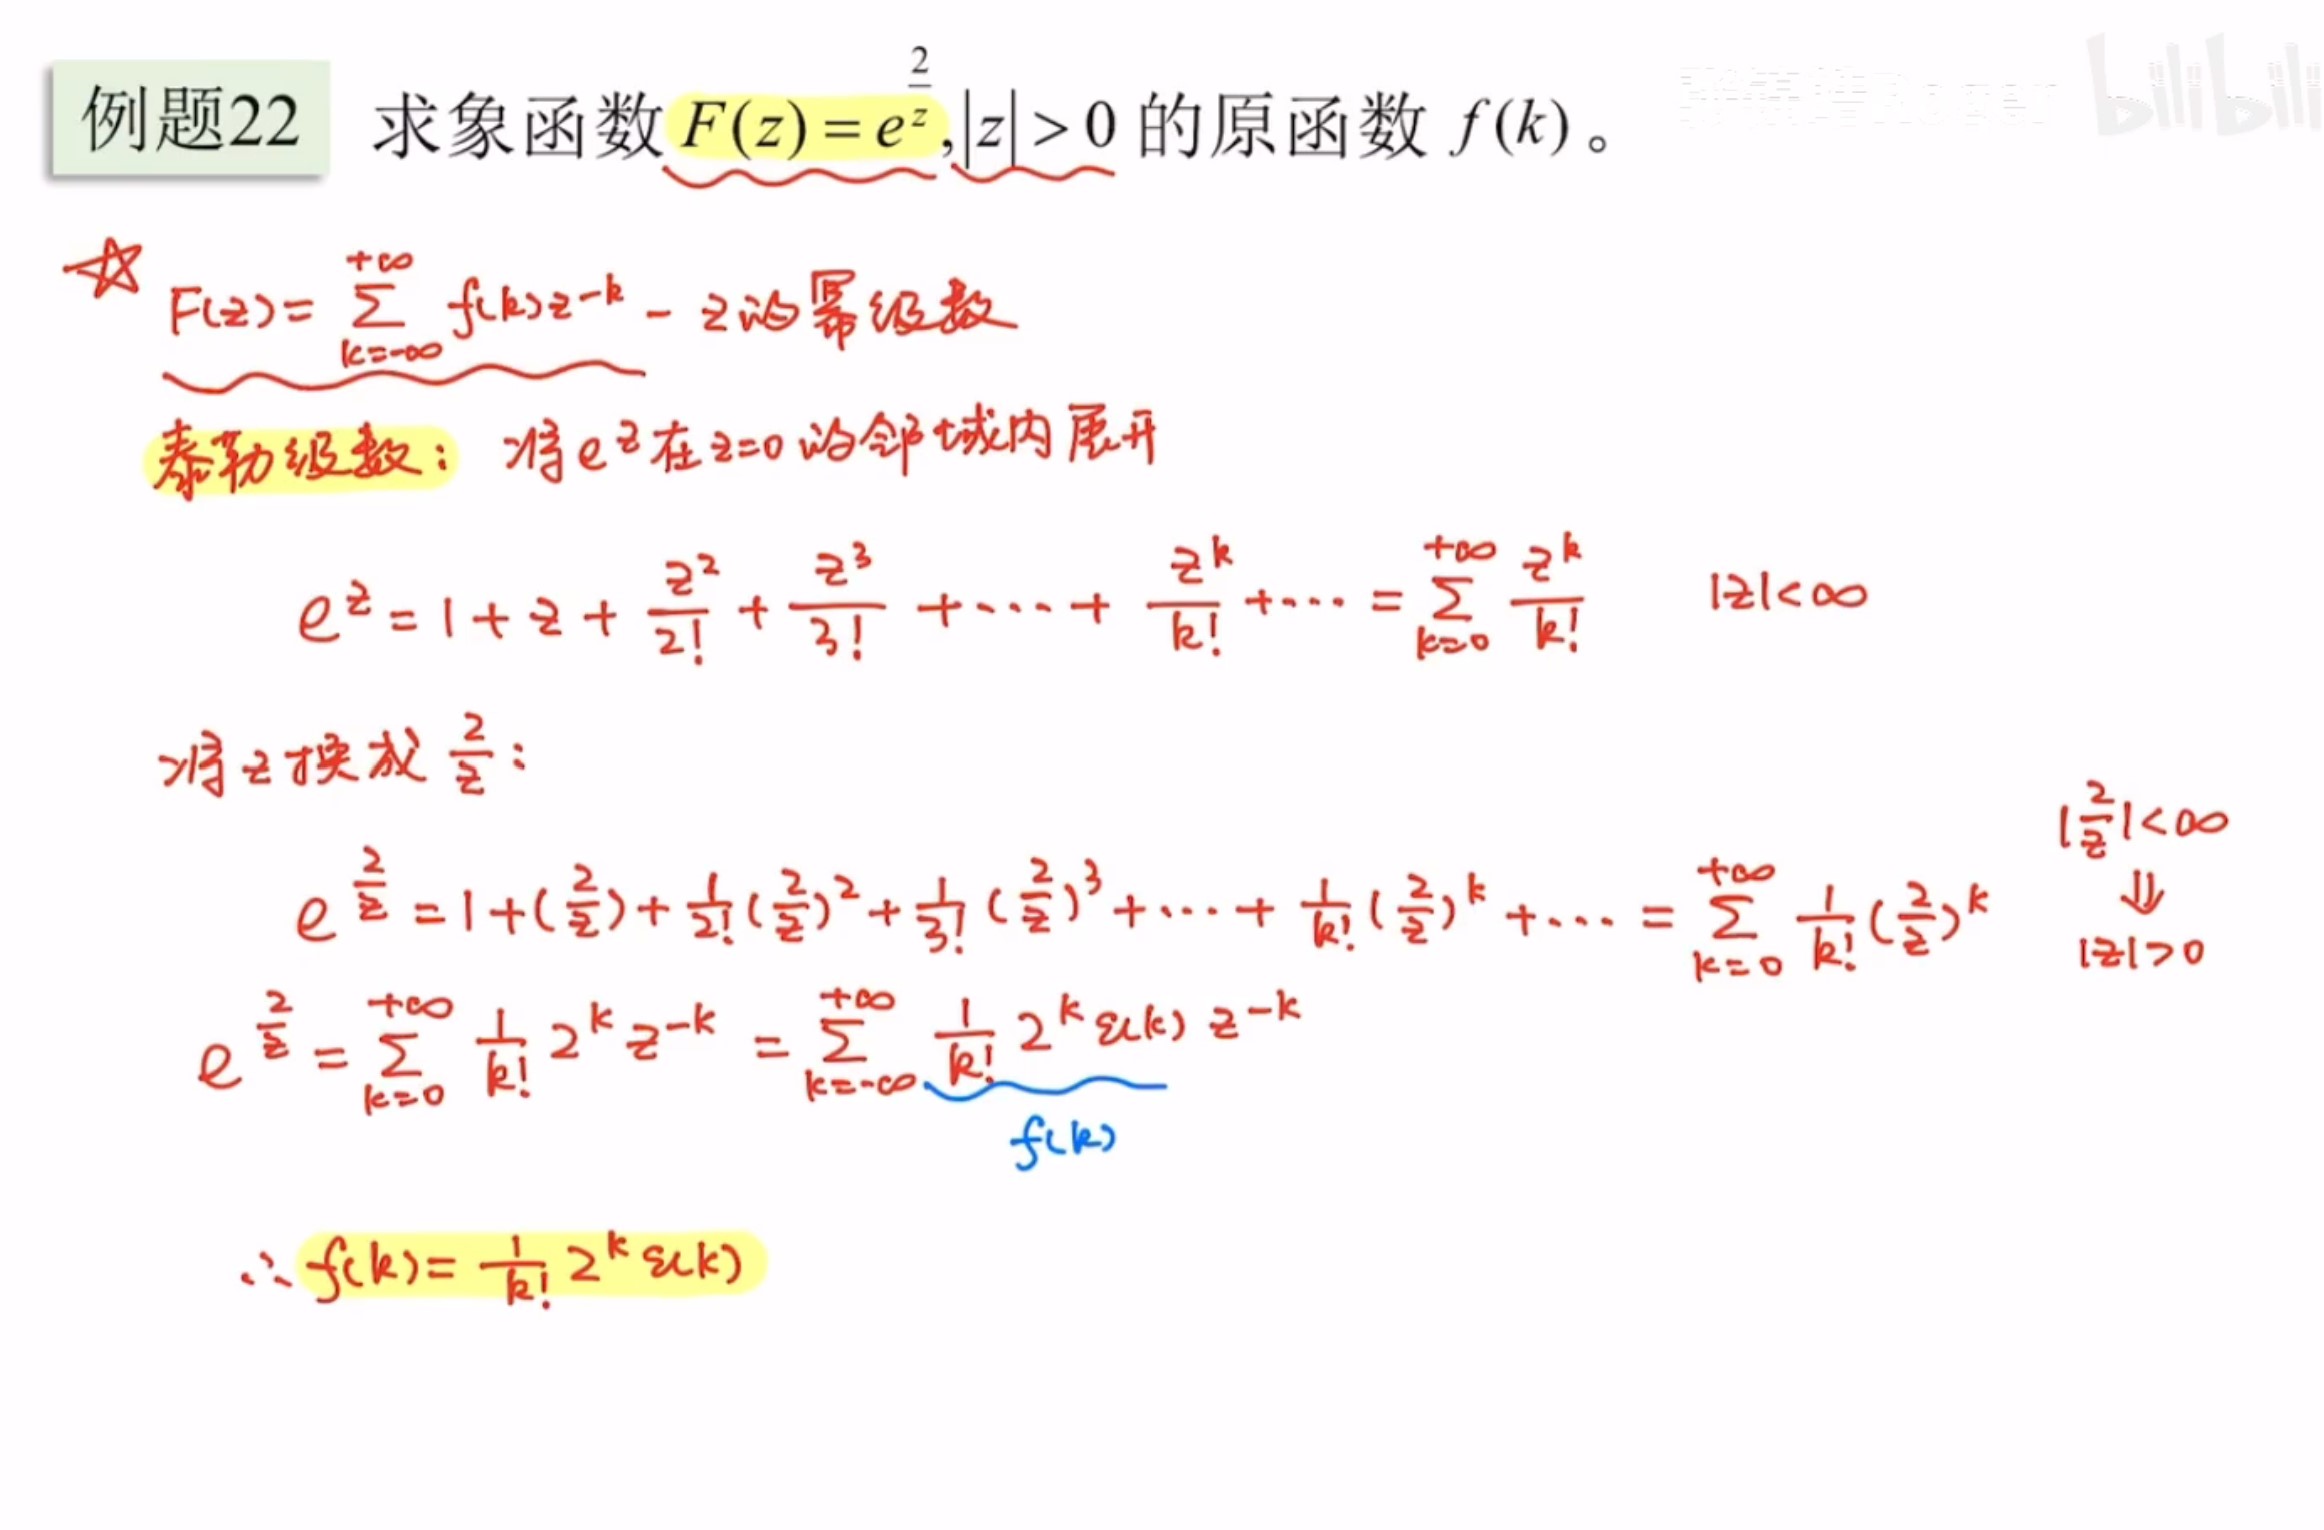 例题22 求象函数 F(z) = e^{2/z}, |z| > 0 的原函数 f(k)。
bilibili
☆ F(z) = \sum_{k=-∞}^{+∞} f(k) z^{-k} - z的幂级数
泰勒级数: 将e^z在z=0的邻域内展开
e^z = 1 + z + \frac{z^2}{2!} + \frac{z^3}{3!} + ... + \frac{z^k}{k!} + ... = \sum_{k=0}^{+∞} \frac{z^k}{k!} |z|<∞
将z换成 \frac{2}{z}:
e^{\frac{2}{z}} = 1 + (\frac{2}{z}) + \frac{1}{2!}(\frac{2}{z})^2 + \frac{1}{3!}(\frac{2}{z})^3 + ... + \frac{1}{k!}(\frac{2}{z})^k + ... = \sum_{k=0}^{+∞} \frac{1}{k!}(\frac{2}{z})^k
|\frac{2}{z}|<∞
⇓
|z|>0
e^{\frac{2}{z}} = \sum_{k=0}^{+∞} \frac{1}{k!} 2^k z^{-k} = \sum_{k=-∞}^{+∞} \frac{1}{k!} 2^k ε(k) z^{-k}
f(k)
∴ f(k) = \frac{1}{k!} 2^k ε(k)